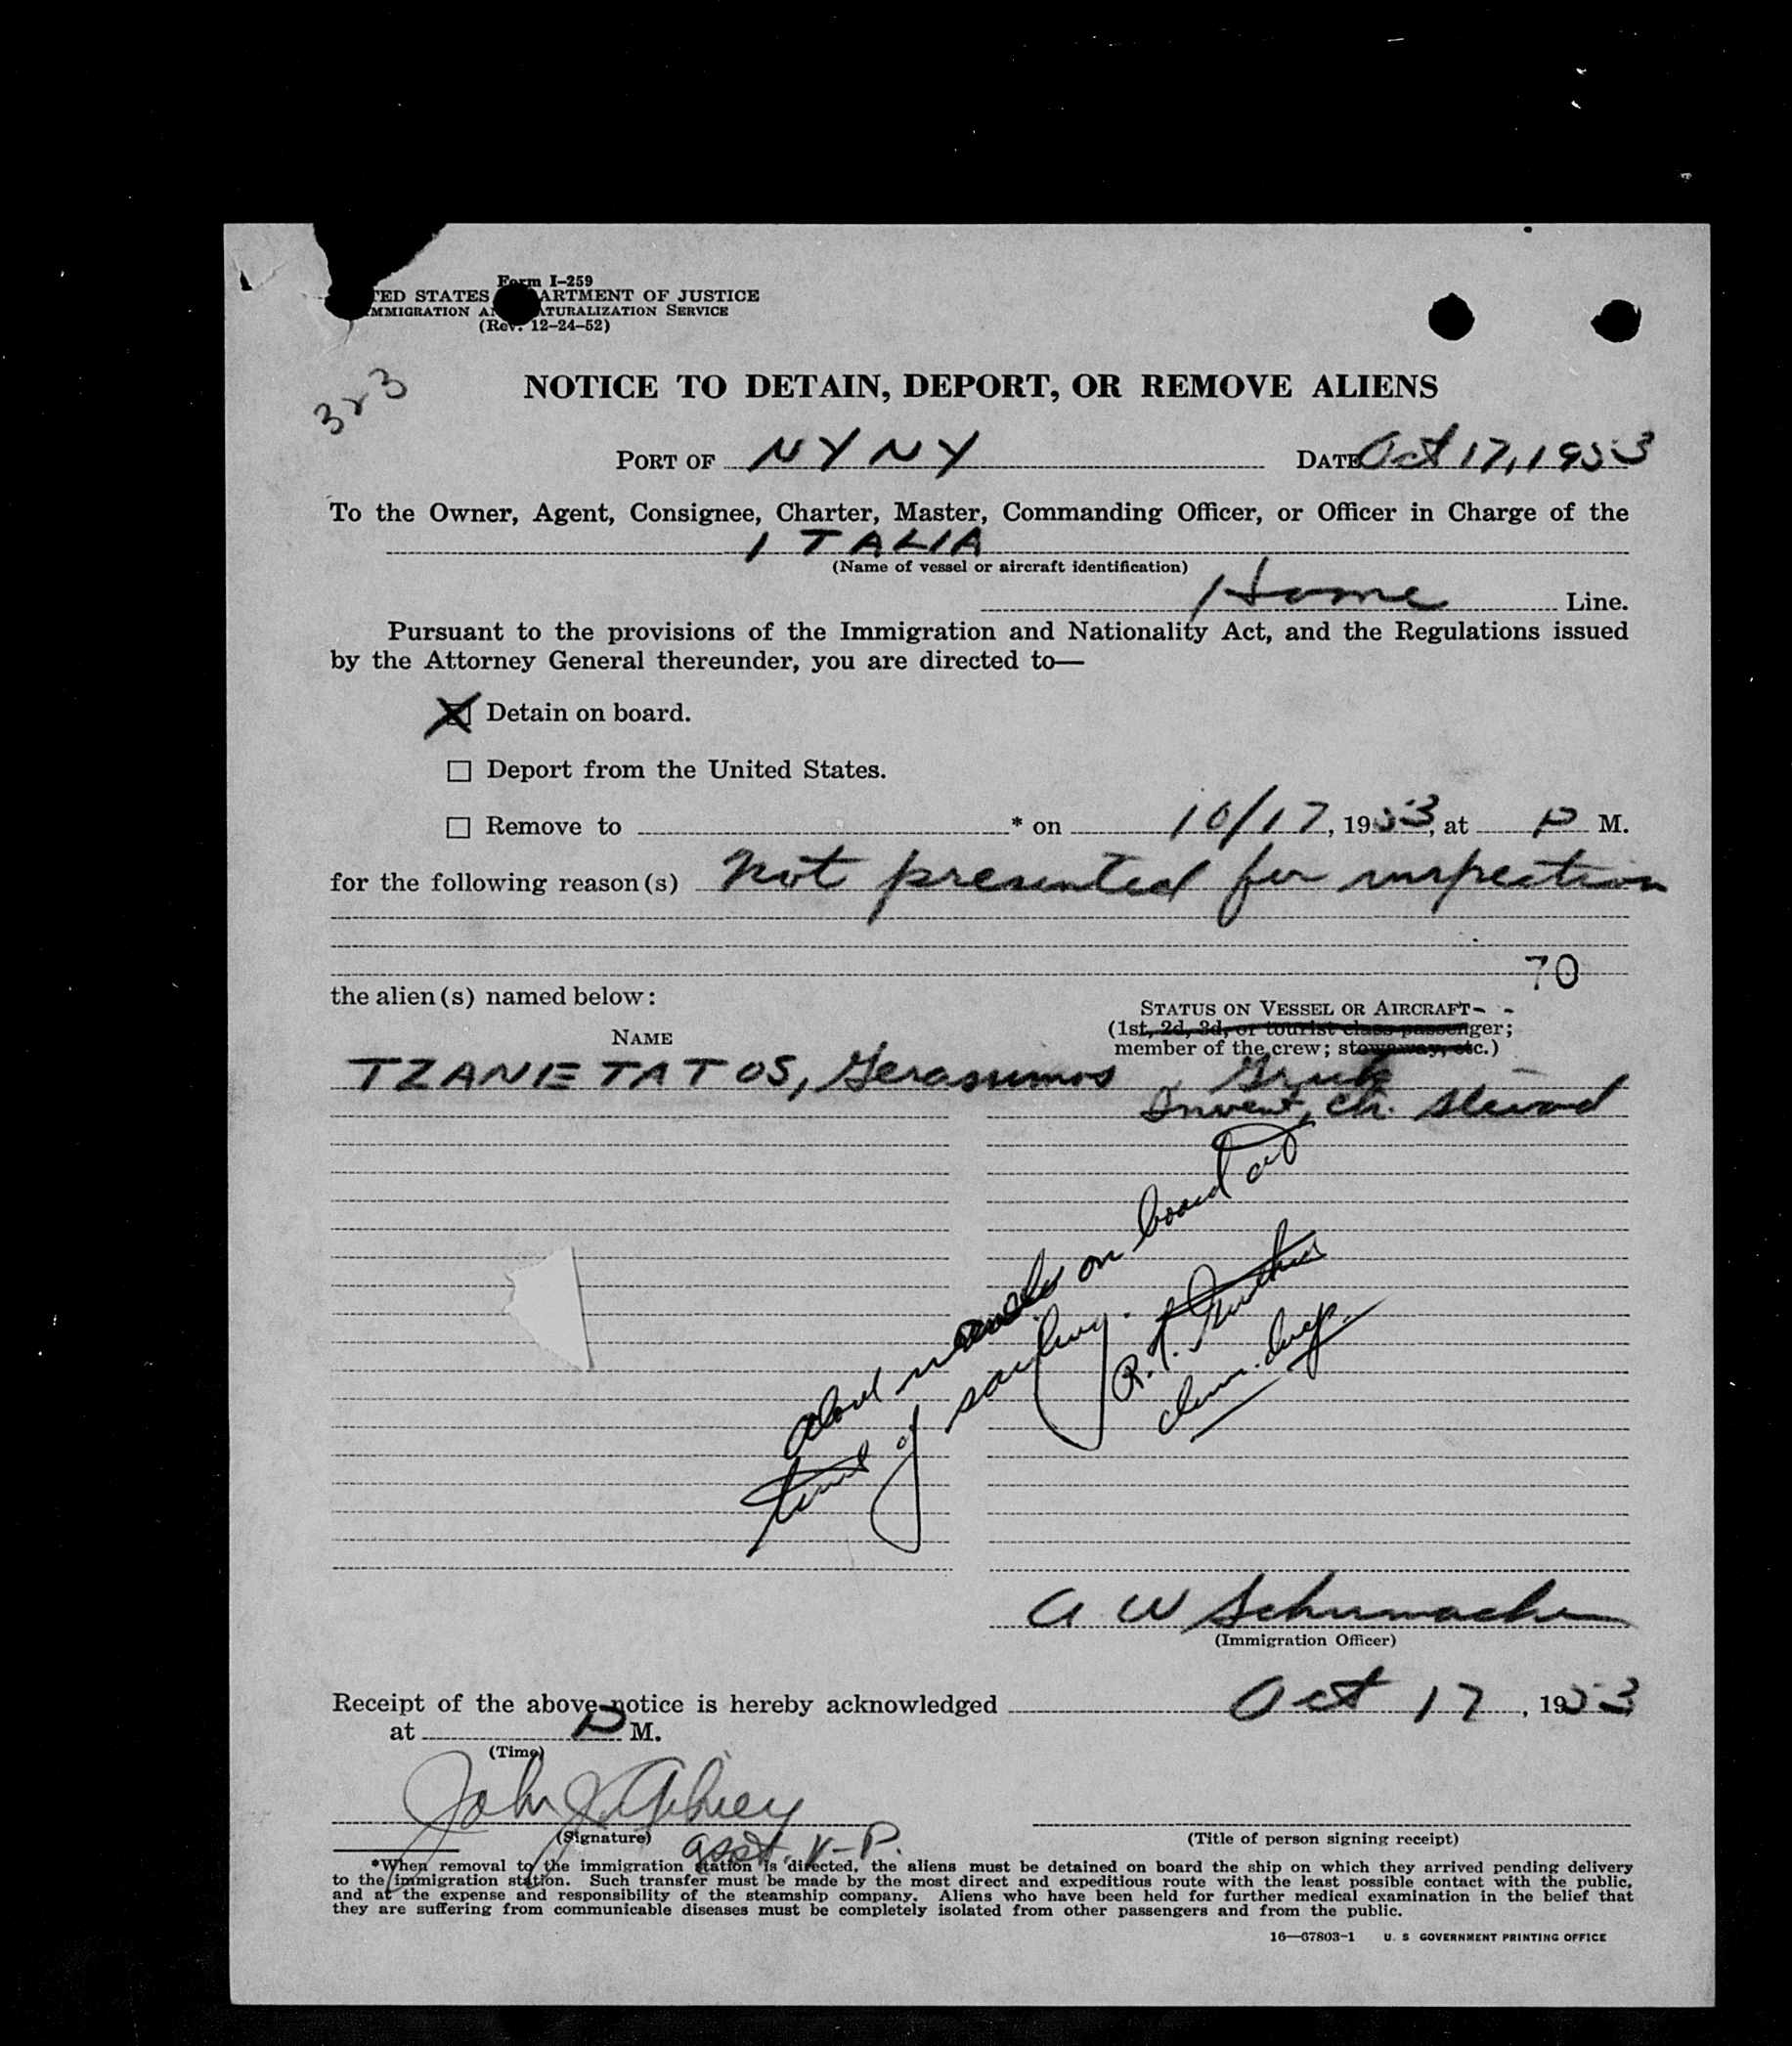 Form I-259
TED STATES ARTMENT OF JUSTICE
MMIGRATION A ATURALIZATION SERVICE
(Rev. 12-24-52)
323
NOTICE TO DETAIN, DEPORT, OR REMOVE ALIENS
PORT OF NY NY DATE Oct 17, 1953
To the Owner, Agent, Consignee, Charter, Master, Commanding Officer, or Officer in Charge of the
ITALIA
(Name of vessel or aircraft identification)
Home Line.
Pursuant to the provisions of the Immigration and Nationality Act, and the Regulations issued
by the Attorney General thereunder, you are directed to—
X Detain on board.
☐ Deport from the United States.
☐ Remove to * on 10/17, 1953, at P M.
for the following reason(s) Not presented for inspection
70
the alien(s) named below:
STATUS ON VESSEL OR AIRCRAFT
(1st, 2d, 3d, or tourist class passenger;
member of the crew; stowaway, etc.)
NAME
TZANETATOS, Gerassimos Greek
Invent, Ch. Steward
on board at
time of sailing.
R.
A W Schumacher
(Immigration Officer)
Receipt of the above notice is hereby acknowledged Oct 17, 1953
at P M.
(Time)
John
(Signature) Asst. V-P.
(Title of person signing receipt)
*When removal to the immigration station is directed, the aliens must be detained on board the ship on which they arrived pending delivery
to the immigration station. Such transfer must be made by the most direct and expeditious route with the least possible contact with the public,
and at the expense and responsibility of the steamship company. Aliens who have been held for further medical examination in the belief that
they are suffering from communicable diseases must be completely isolated from other passengers and from the public.
16—67803-1 U. S GOVERNMENT PRINTING OFFICE